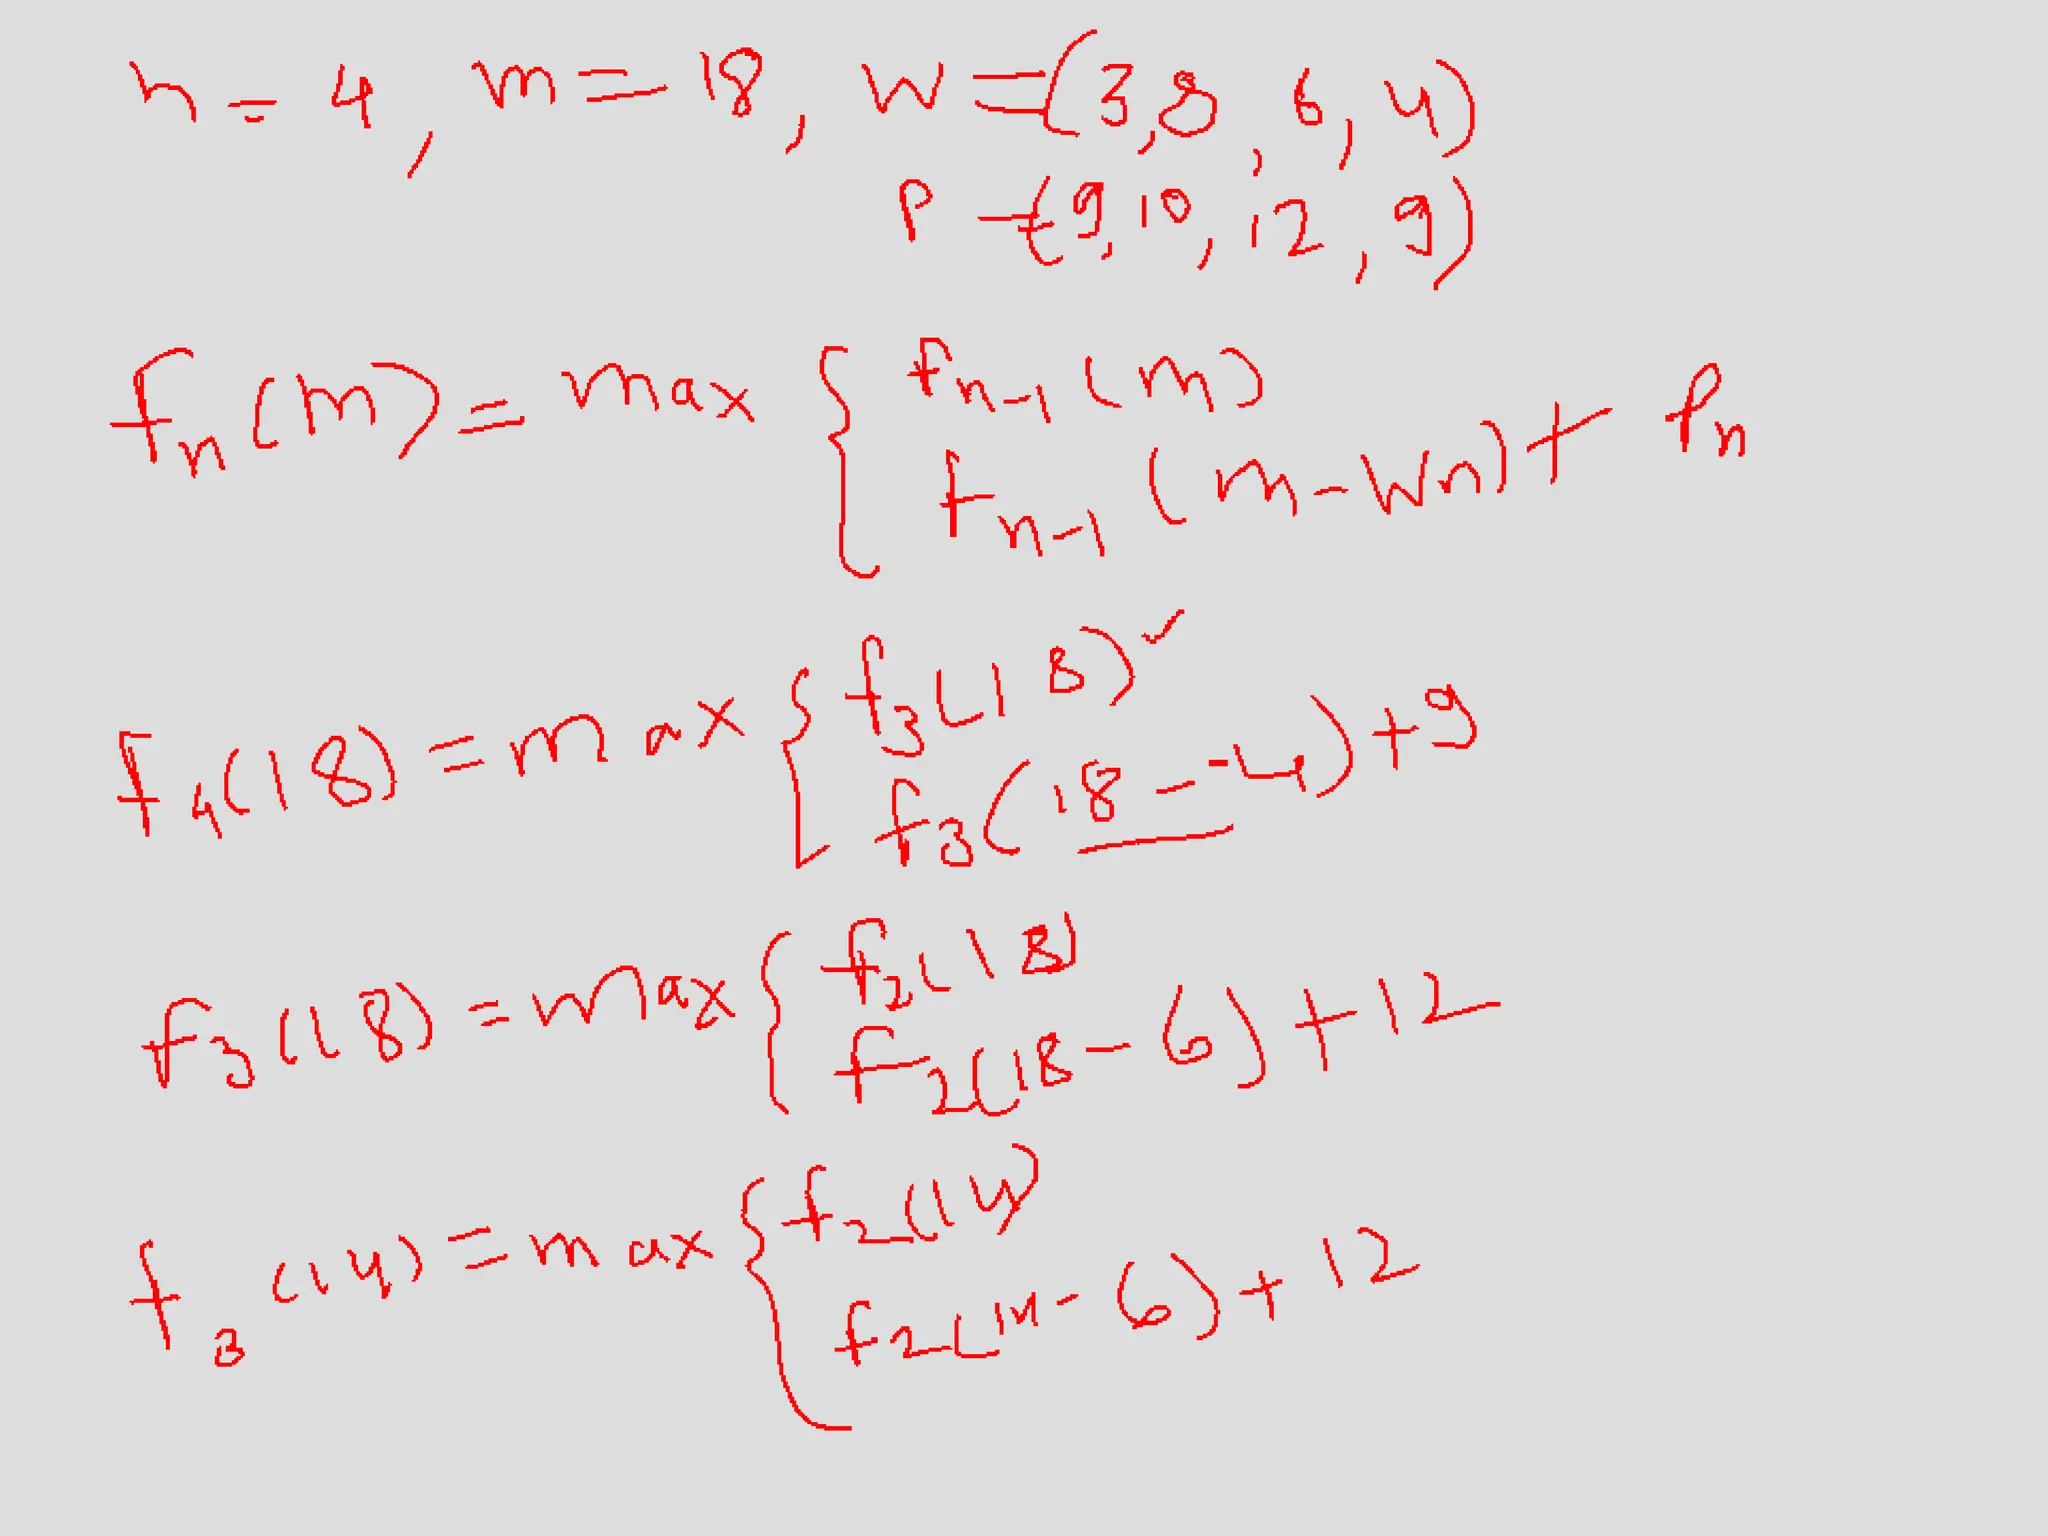 n = 4, m = 18, w = (3, 8, 6, 4)
P = (9, 10, 12, 9)
fn(m) = max { fn-1(m)
fn-1(m-Wn) + Pn
f4(18) = max { f3(18) ✓
f3(18 - -4) + 9
f3(18) = max { f2(18)
f2(18-6) + 12
f3(14) = max { f2(14)
f2(14-6) + 12